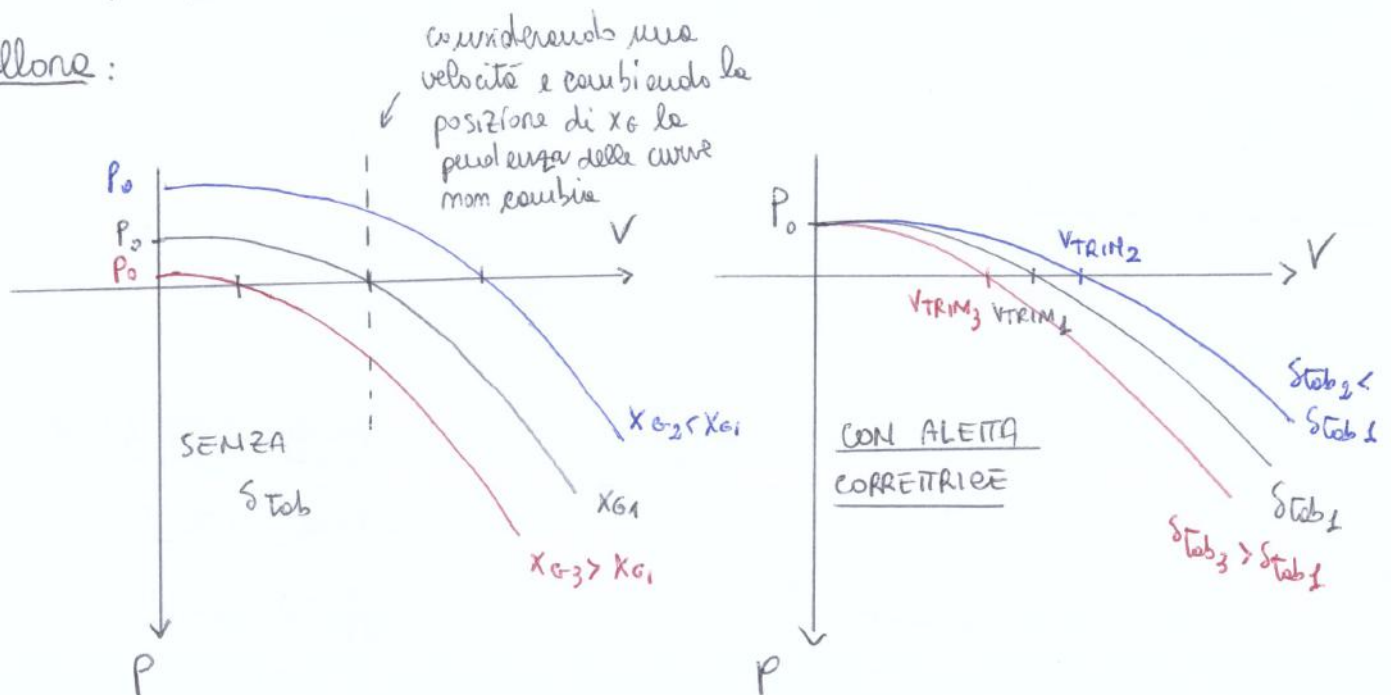 allora:
considerando una
velocità e cambiando la
posizione di xG la
pendenza delle curve
non cambia
P₀
P₀
P₀
V
SENZA
δTab
XG2<XG1
XG1
XG3>XG1
P
P₀
VTRIM2
V
VTRIM3 VTRIM1
CON ALETTA
CORRETTRICE
δTab2<
δTab1
δTab1
δTab3>δTab1
P